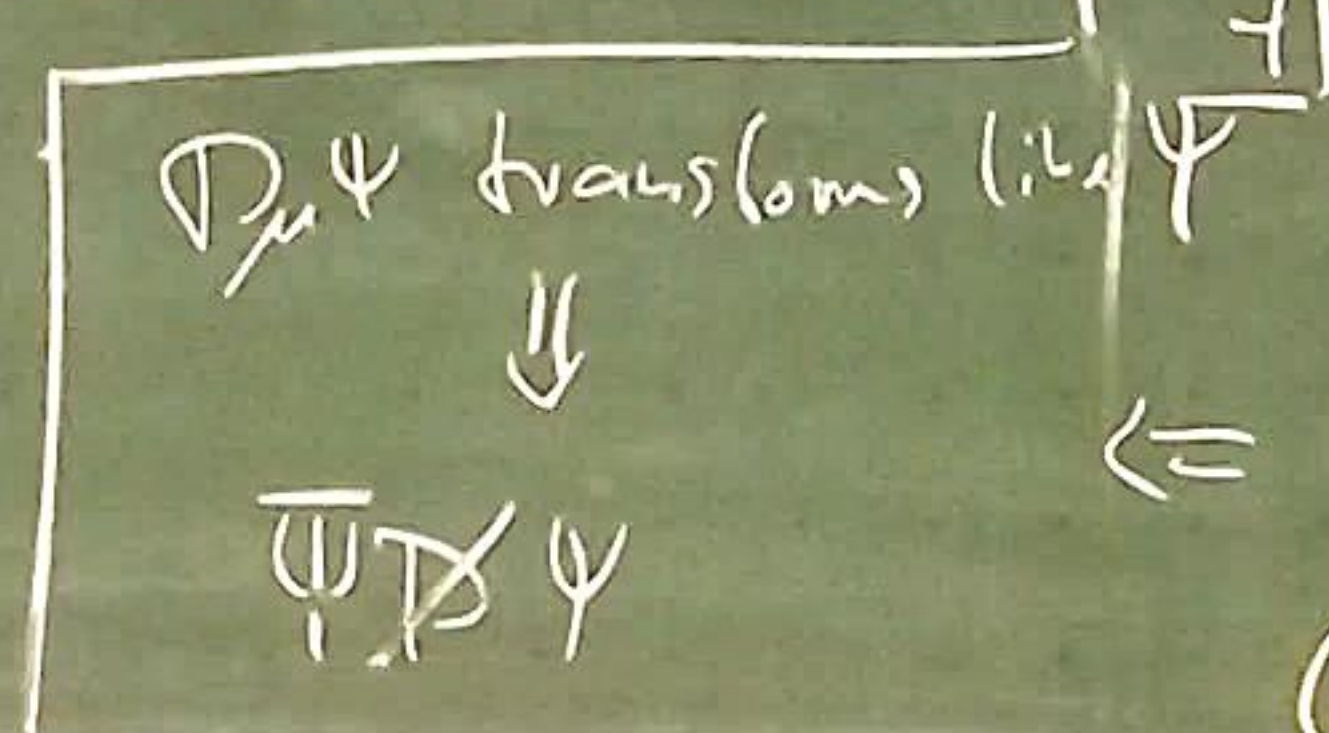 D_μ Ψ transforms like Ψ
⇓
Ψ̅ D̸ Ψ
⇐